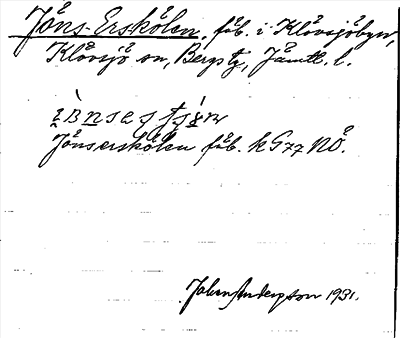 Jöns-Erskölen, fäb. i Klövsjöbyn,
Klövsjö sn, Bergs tg, Jämtl. l.
Jönserskölen fäb. k G77 NÖ.
Johan Andersson 1931.